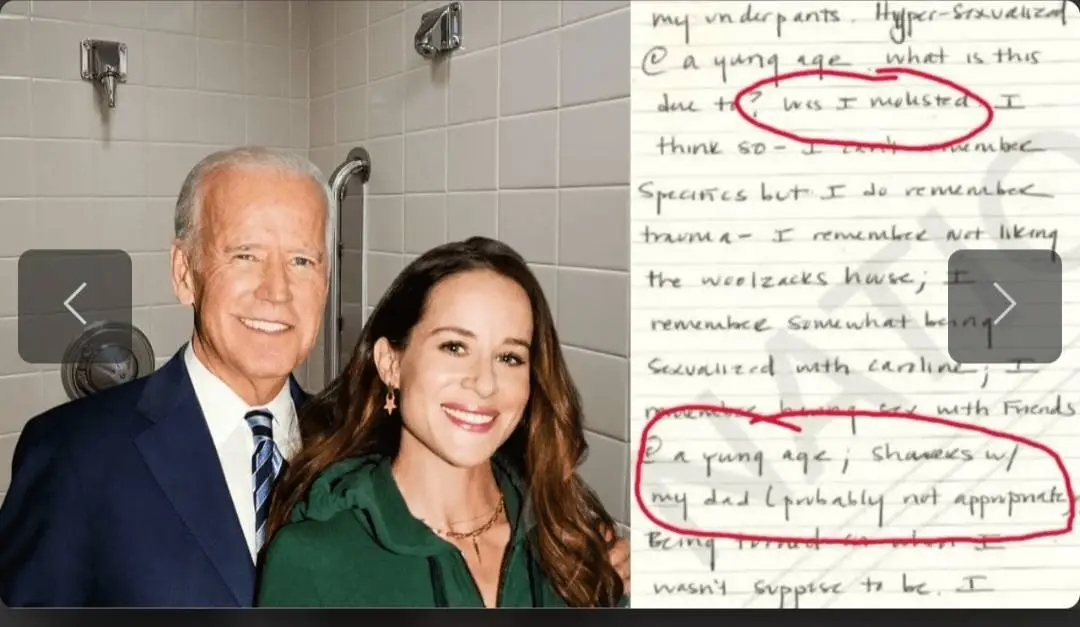 my underpants. Hyper-sexualized
@ a yung age. what is this
due to? Was I molested. I
think so - I can't remember
Specifics but I do remember
trauma - I remember not liking
the woolzacks house; I
remember somewhat being
sexualized with caroline; I
remember sex with Friends
@ a yung age; showers w/
my dad (probably not appropriate)
Being turned on when I
wasn't suppose to be. I